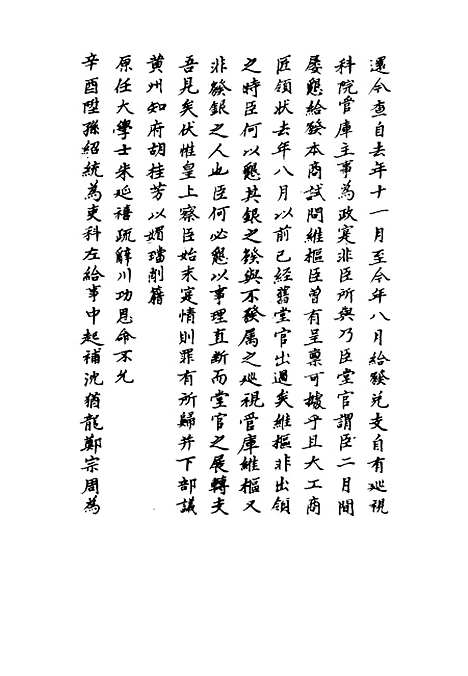 運今查自去年十一月至今年八月給發兌支自有巡視
科院管庫主事為政寔非臣所與乃臣堂官謂臣二月間
屡懇給發本商試問維樞臣曾有呈稟可據乎且大工商
匠領狀去年八月以前已經舊堂官出過矣維樞非出領
之時臣何以懇其銀之發與不發屬之巡視管庫維樞又
非發銀之人也臣何必懇以事理直斷而堂官之展轉支
吾見矣伏惟皇上察臣始末寔情則罪有所歸并下部議
黄州知府胡桂芳以媚璫削籍
原任大學士朱延禧疏辭川功恩命不允
辛酉陞孫紹統為吏科左給事中起補沈猶龍鄭宗周為